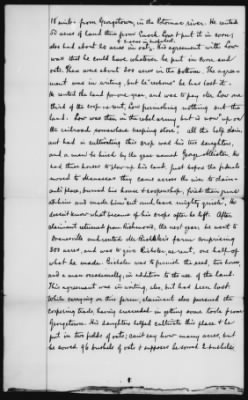 18 miles from Georgetown, in the Potomac river. He rented
50 acres of land there from Enoch Low & put it in corn;
also had about 20 acres in oats. His agreement with Low
was that he could have whatever he put in corn and
oats. There were about 200 acres in the bottom. The agree-
ment was in writing, but he has lost it.
He rented the land for one year, and was to pay Mr. Low one
third of the crop as rent, Low furnishing nothing but the
land. Low was then in the rebel army but is now up on
the railroad somewhere keeping store. All the help claim-
ant had in cultivating this crop was his two daughters,
and a man he hired by the name of George
had three horses to plow up his land. Just before the rebels
moved to Manassas they came across the river to claim-
ant's place, burned his house & coopershop, fired their guns
at him and made him "cut out, leave mighty quick". He
doesn't know what became of his crops after he left. After
claimant returned from Richmond, the next year, he went to
Dranesville and rented farm comprising
200 acres, and was to give as rent, one-half of
what he made. was to furnish the seed, two horses,
and a man occasionally, in addition to the use of the land.
This agreement was in writing, also, but had been lost.
While carrying on this farm, claimant also pursued the
coopering trade, having succeeded in getting some tools from
Georgetown. His daughters helped cultivate this place & he
put in two fields of oats; can't say how many acres, but
he sowed 96 bushels of oats & supposes he sowed 2 bushels